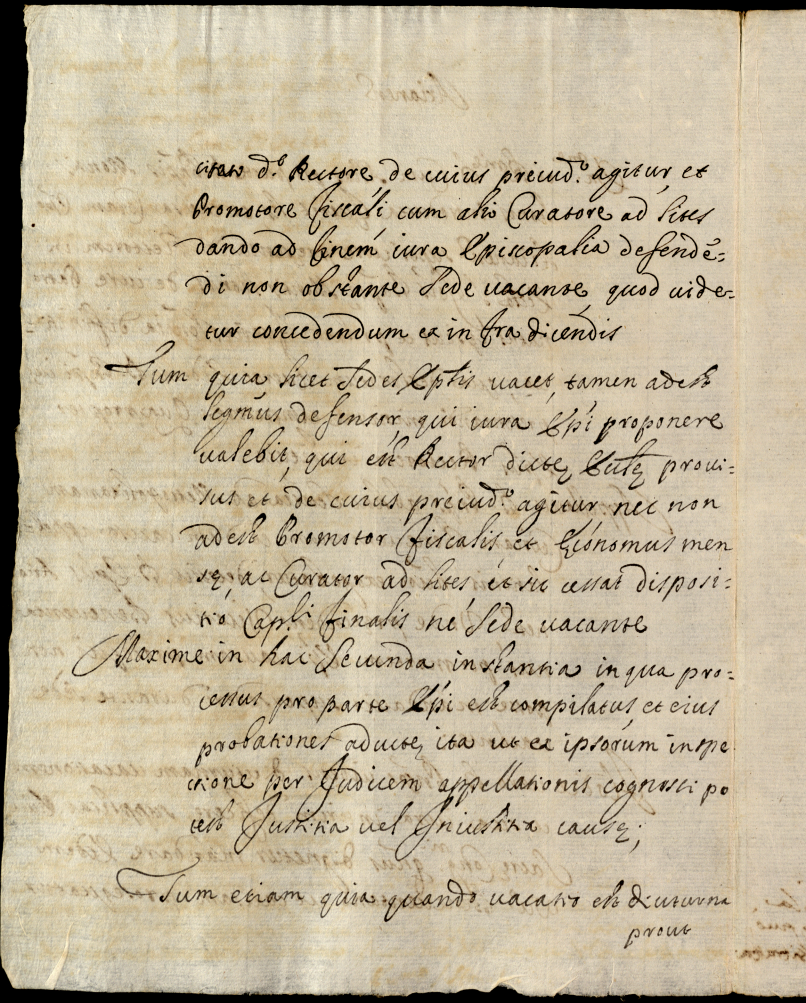 citato d.º Rectore de cuius preiud.º agitur et
Promotore fiscali cum alio Curatore ad lites
dando ad finem iura Episcopalia defendē=
di non obstante Sede vacante quod uide=
tur concedendum ex infra dicendis
Tum quia licet Sedes Ep̄lis vacet, tamen adest
legmus defensor, qui iura Ep̄i proponere
valebit, qui est Rector dictę Ecclę proui=
sus et de cuius preiud.º agitur nec non
adest Promotor fiscalis et Ęconomus men
sę, ac Curator ad lites et sic cessat disposi=
tio Capli finalis ne Sede vacante
Maxime in hac Secunda instantia in qua pro=
cessus pro parte Ep̄i est compilatus et eius
probationes aductę ita ut ex ipsorum inspe
ctione per Judicem appellationis cognosci po
test Justitia uel Iniustitia causę;
Tum etiam quia quando vacatio est diuturna
prout